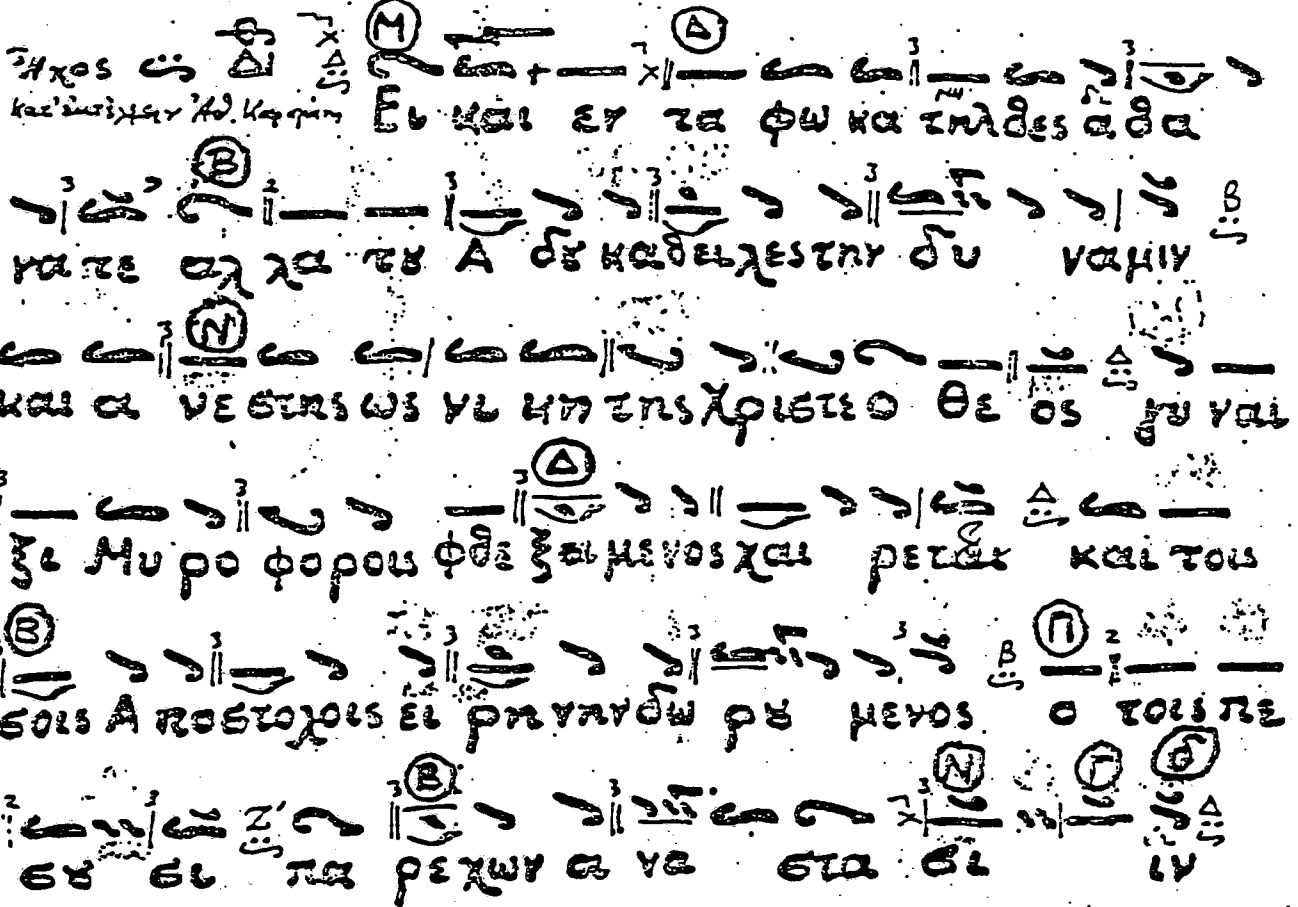 Ἦχος Δι Μ Δ
κατ' ἐκτέλεσιν Ἀθ. Καραμάνη Ει και εν τα φω κα τηλθες α θα
Β
να τε αλ λα τȣ Α δȣ καθειλες την δυ ναμιν Β
Ν
και α νε στης ως νι κη της Χριστε ο Θε ος Δ γυ ναι
Δ
ξι Μυ ρο φοροις φθε ξαμενος χαι ρετε Δ και τοις
Β Π
σοις Α ποστολοις ει ρηνην δω ρȣ μενος Β ο τοις πε
Β Ν Γ δ
σȣ σι Ζ' πα ρεχων α να στα σι ιν Δ